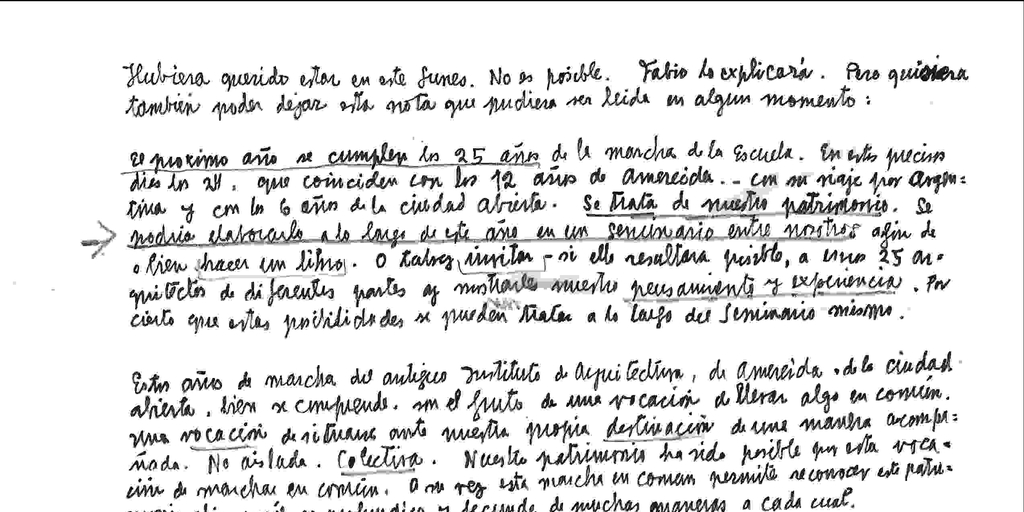 Hubiera querido estar en este lunes. No es posible. Fabio lo explicará. Pero quisiera
también poder dejar esta nota que pudiera ser leida en algun momento:
El proximo año se cumplen los 25 años de la marcha de la Escuela. En estos precisos
dias los 24, que coinciden con los 12 años de Amereida.. con su viaje por Argen=
tina y con los 6 años de la ciudad abierta. Se trata de nuestro patrimonio. Se
podría elaborarlo a lo largo de este año en un seminario entre nosotros afin de
o bien hacer un libro. O talvez invitar - si ello resultara posible, a unos 25 ar=
quitectos de diferentes partes y mostrarle nuestro pensamiento y experiencia. Por
cierto que estas posibilidades se pueden tratar a lo largo del Seminario mismo.
Estos años de marcha del antiguo Instituto de Arquitectura, de Amereida, de la ciudad
abierta, bien se comprende. son el fruto de una vocación de llevar algo en común.
una vocación de situarse ante nuestra propia destinación de una manera acompa=
ñada. No aislada. Colectiva. Nuestro patrimonio ha sido posible por esta voca=
ción de marchar en común. A su vez esta marcha en comun permite reconocer este patri=
y de muchas maneras a cada cual.